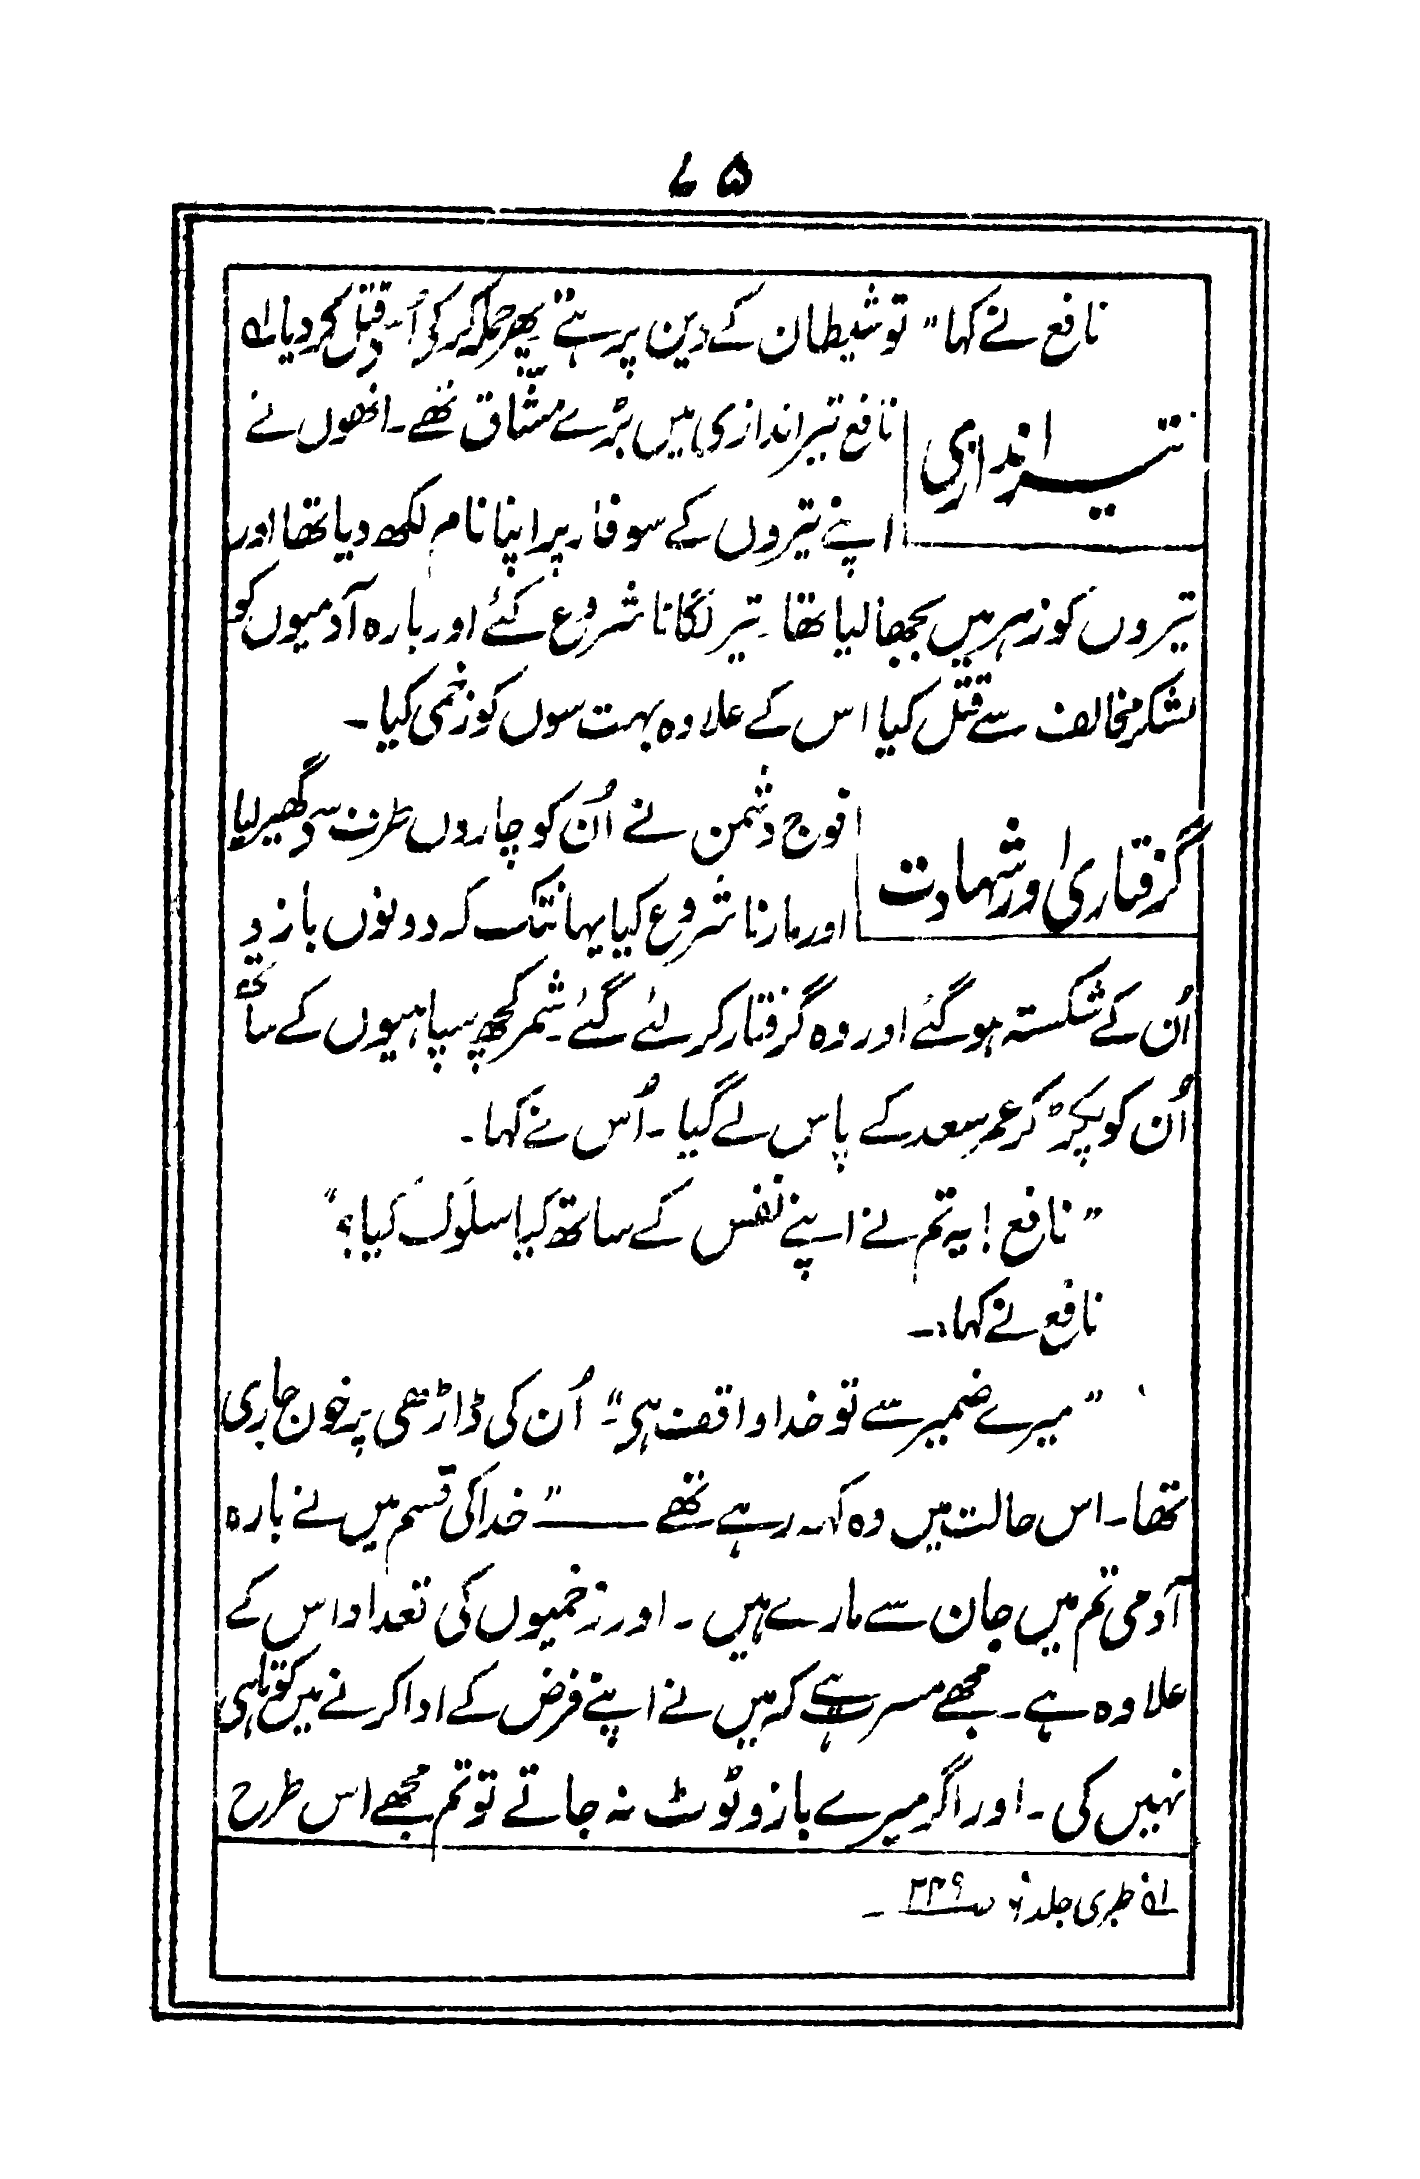 ۷۵
نافع نے کہا "تو شیطان کے دین پر ہے" پھر حملہ کر کے اُسے قتل کر دیا ؎۱
تیر اندازی
نافع تیر اندازی میں بڑے مشّاق تھے۔ انھوں نے
اپنے تیروں کے سوفار پر اپنا نام لکھ دیا تھا اور
تیروں کو زہر میں بجھا لیا تھا۔ تیر لگانا شروع کئے اور بارہ آدمیوں کو
لشکر مخالف سے قتل کیا اس کے علاوہ بہت سوں کو زخمی کیا۔
گرفتاری اور شہادت
فوج دشمن نے اُن کو چاروں طرف سے گھیر لیا
اور مارنا شروع کیا یہانتک کہ دونوں بازو
اُن کے شکستہ ہو گئے اور وہ گرفتار کر لئے گئے۔ شمر کچھ سپاہیوں کے ساتھ
اُن کو پکڑ کر عمر سعد کے پاس لے گیا۔ اُس نے کہا۔
"نافع! یہ تم نے اپنے نفس کے ساتھ کیا سلوک کیا؟"
نافع نے کہا:۔
"میرے ضمیر سے تو خدا واقف ہی"۔ اُن کی ڈاڑھی پر خون جاری
تھا۔ اس حالت میں وہ کہہ رہے تھے ــــــ "خدا کی قسم میں نے بارہ
آدمی تم میں جان سے مارے ہیں۔ اور زخمیوں کی تعداد اس کے
علاوہ ہے۔ مجھے مسرت ہے کہ میں نے اپنے فرض کے ادا کرنے میں کوتاہی
نہیں کی۔ اور اگر میرے بازو ٹوٹ نہ جاتے تو تم مجھے اس طرح
؎۱ طبری جلد ۶ ص ۲۴۹۔